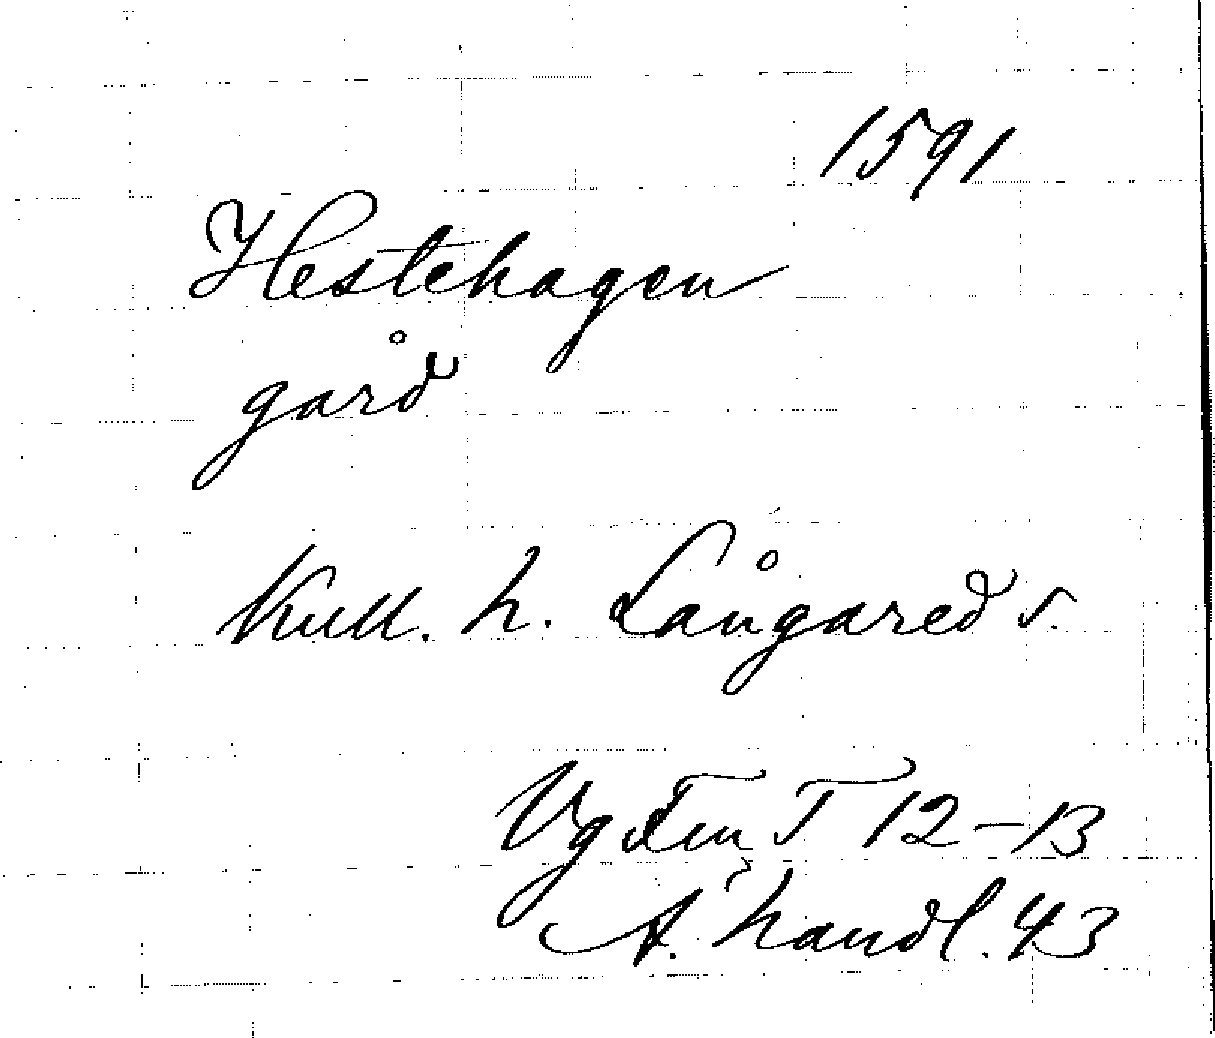 1591
Hestehagen
gård
Kull. h. Långared s.
Vg Fru T 12-13
A. handl. 43